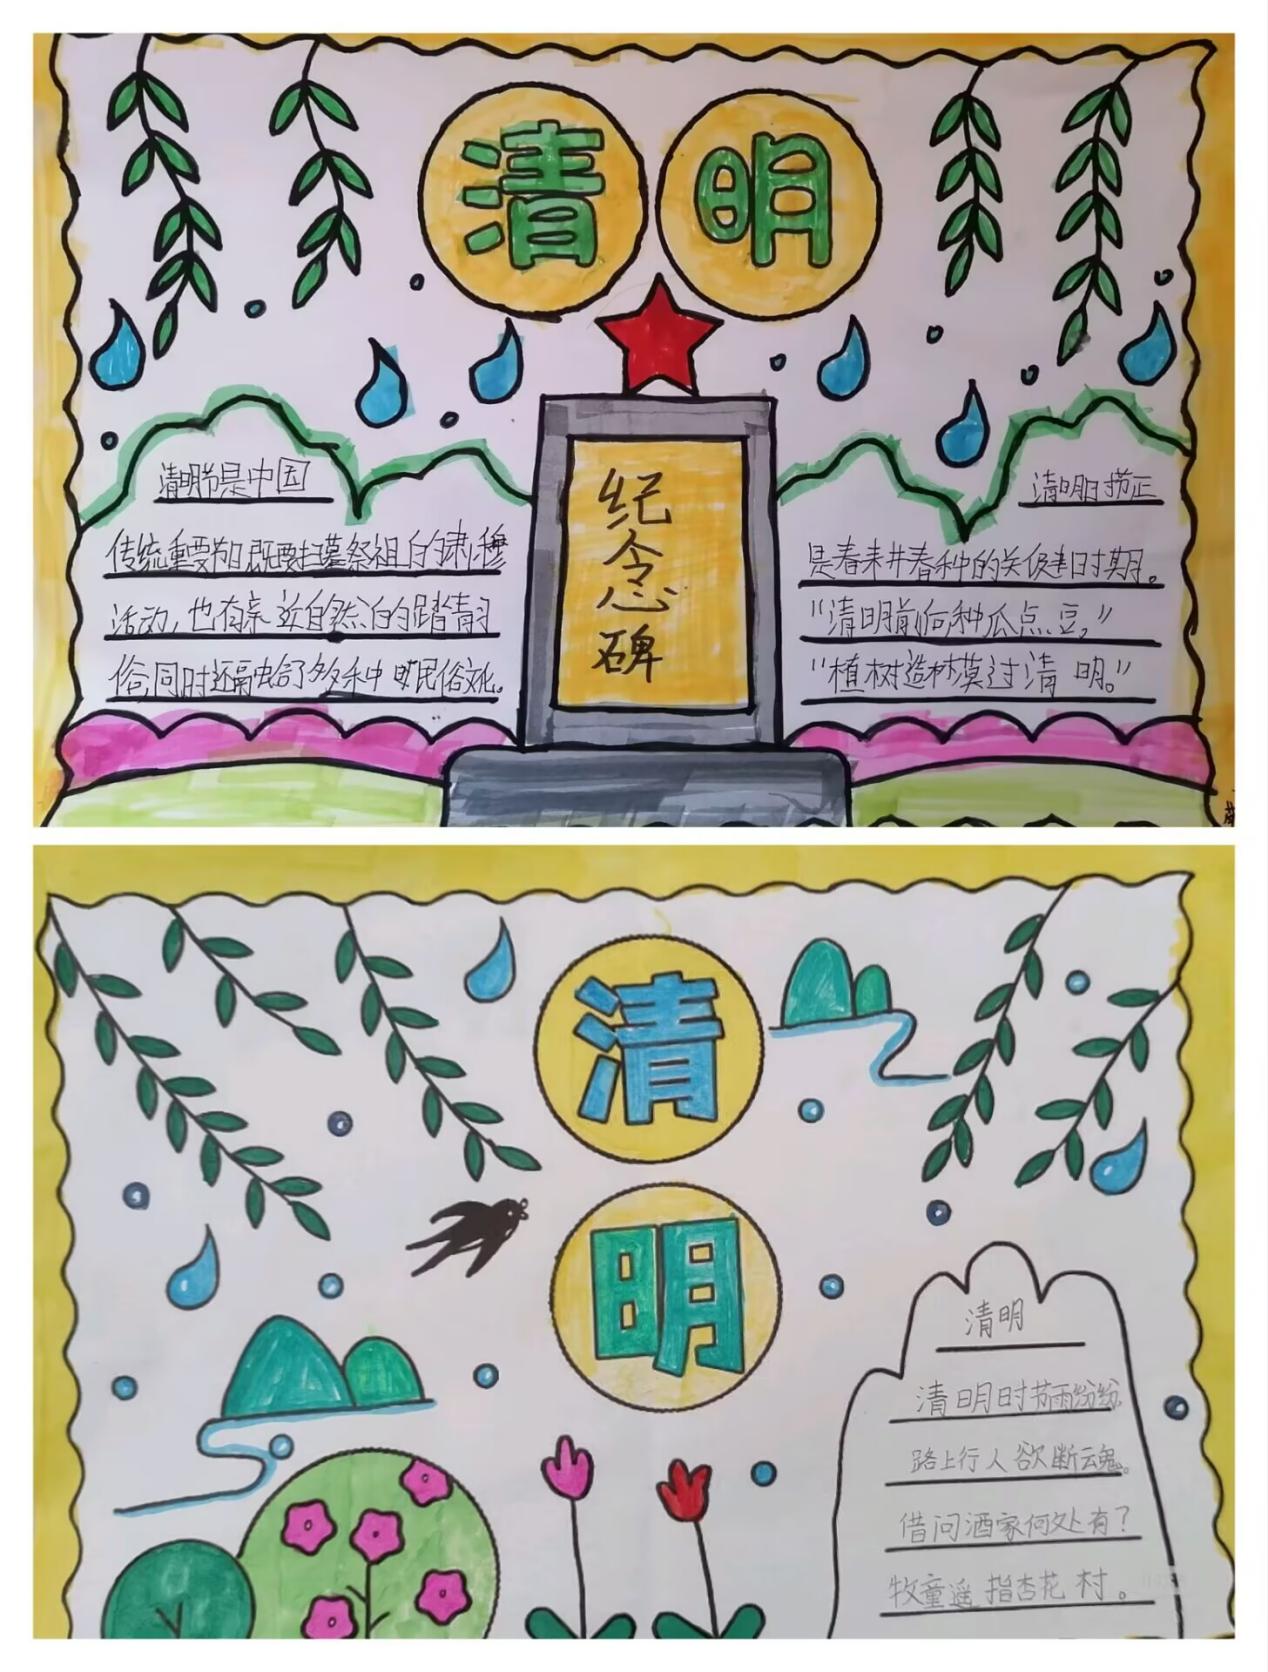 清 明
纪
念
碑
清明节是中国
传统重要节日,既要扫墓祭祖的肃穆
活动,也有亲近自然的踏青习
俗,同时还融合了多种中民俗文化。
清明日
是春耕春种的关键时期。
“清明前后,种瓜点豆,”
“植树造林莫过清明。”
清
明
清明
清明时节雨纷纷,
路上行人欲断魂。
借问酒家何处有?
牧童遥指杏花村。